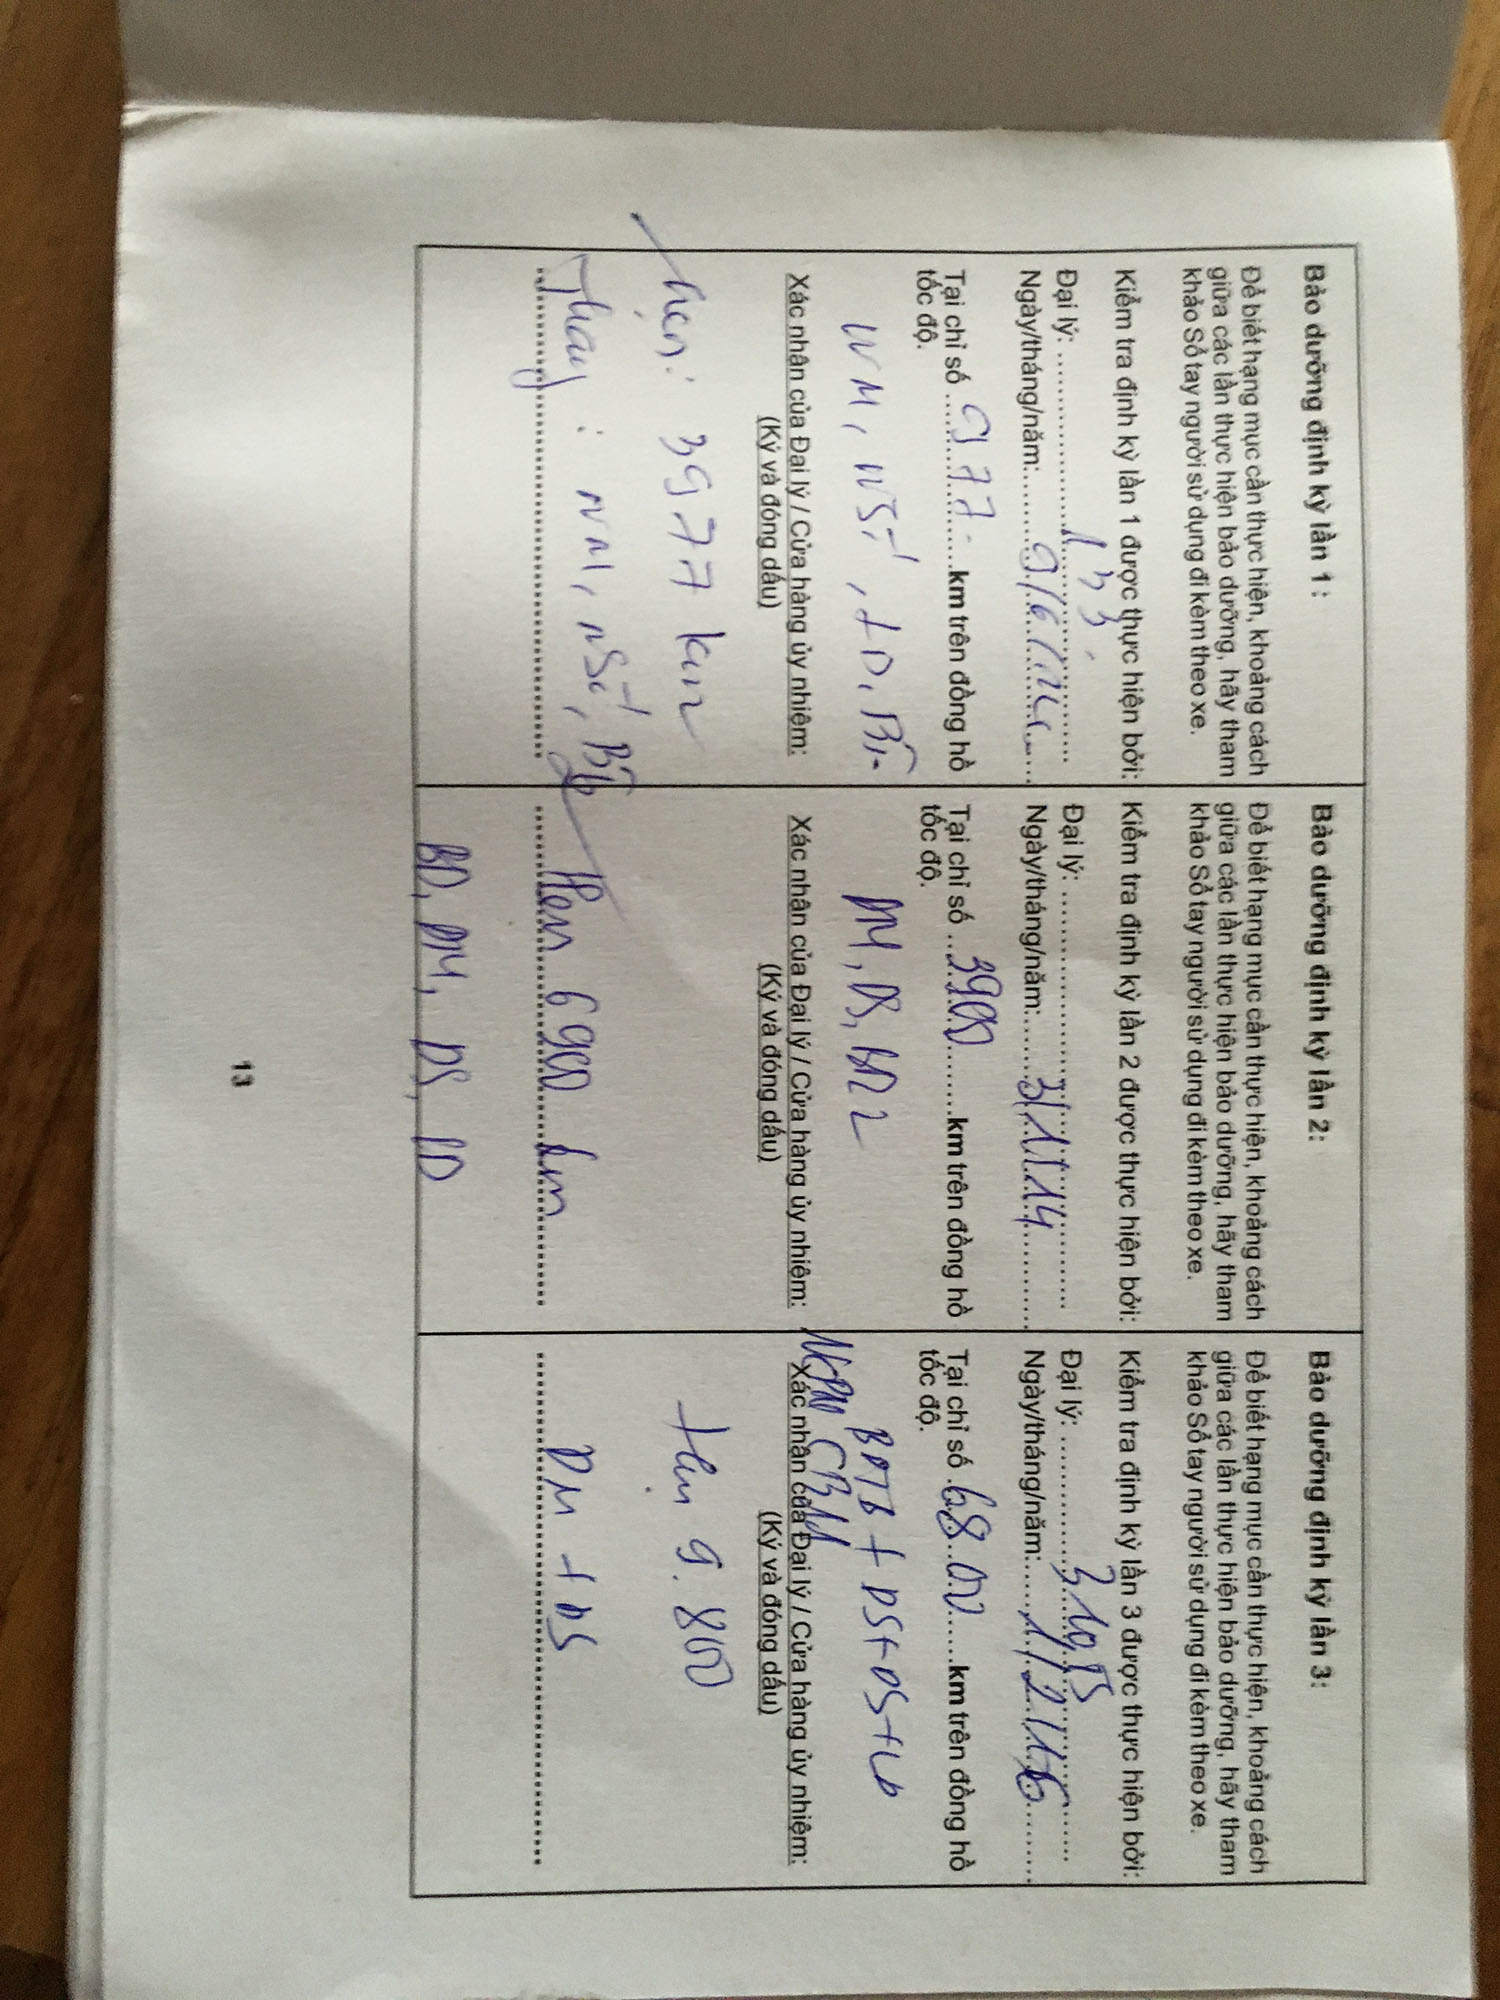 Bảo dưỡng định kỳ lần 1 :
Để biết hạng mục cần thực hiện, khoảng cách
giữa các lần thực hiện bảo dưỡng, hãy tham
khảo Sổ tay người sử dụng đi kèm theo xe.
Kiểm tra định kỳ lần 1 được thực hiện bởi:
133
Đại lý:
Ngày/tháng/năm:
Tại chỉ số 977 km trên đồng hồ
tốc độ.
Xác nhận của Đại lý / Cửa hàng ủy nhiệm:
(Ký và đóng dấu)
hẹn: 3977 km
Thay :
Bảo dưỡng định kỳ lần 2:
Để biết hạng mục cần thực hiện, khoảng cách
giữa các lần thực hiện bảo dưỡng, hãy tham
khảo Sổ tay người sử dụng đi kèm theo xe.
Kiểm tra định kỳ lần 2 được thực hiện bởi:
Đại lý:
Ngày/tháng/năm:
Tại chỉ số 3900 km trên đồng hồ
tốc độ.
DM, DS,
Xác nhận của Đại lý / Cửa hàng ủy nhiệm:
(Ký và đóng dấu)
Hen 6900 km
BD, DM, DS, LD
Bảo dưỡng định kỳ lần 3:
Để biết hạng mục cần thực hiện, khoảng cách
giữa các lần thực hiện bảo dưỡng, hãy tham
khảo Sổ tay người sử dụng đi kèm theo xe.
Kiểm tra định kỳ lần 3 được thực hiện bởi:
Đại lý:
Ngày/tháng/năm: 1/2/16
Tại chỉ số 6800 km trên đồng hồ
tốc độ.
Xác nhận của Đại lý / Cửa hàng ủy nhiệm:
(Ký và đóng dấu)
Hẹn 9.800
DM + DS
13